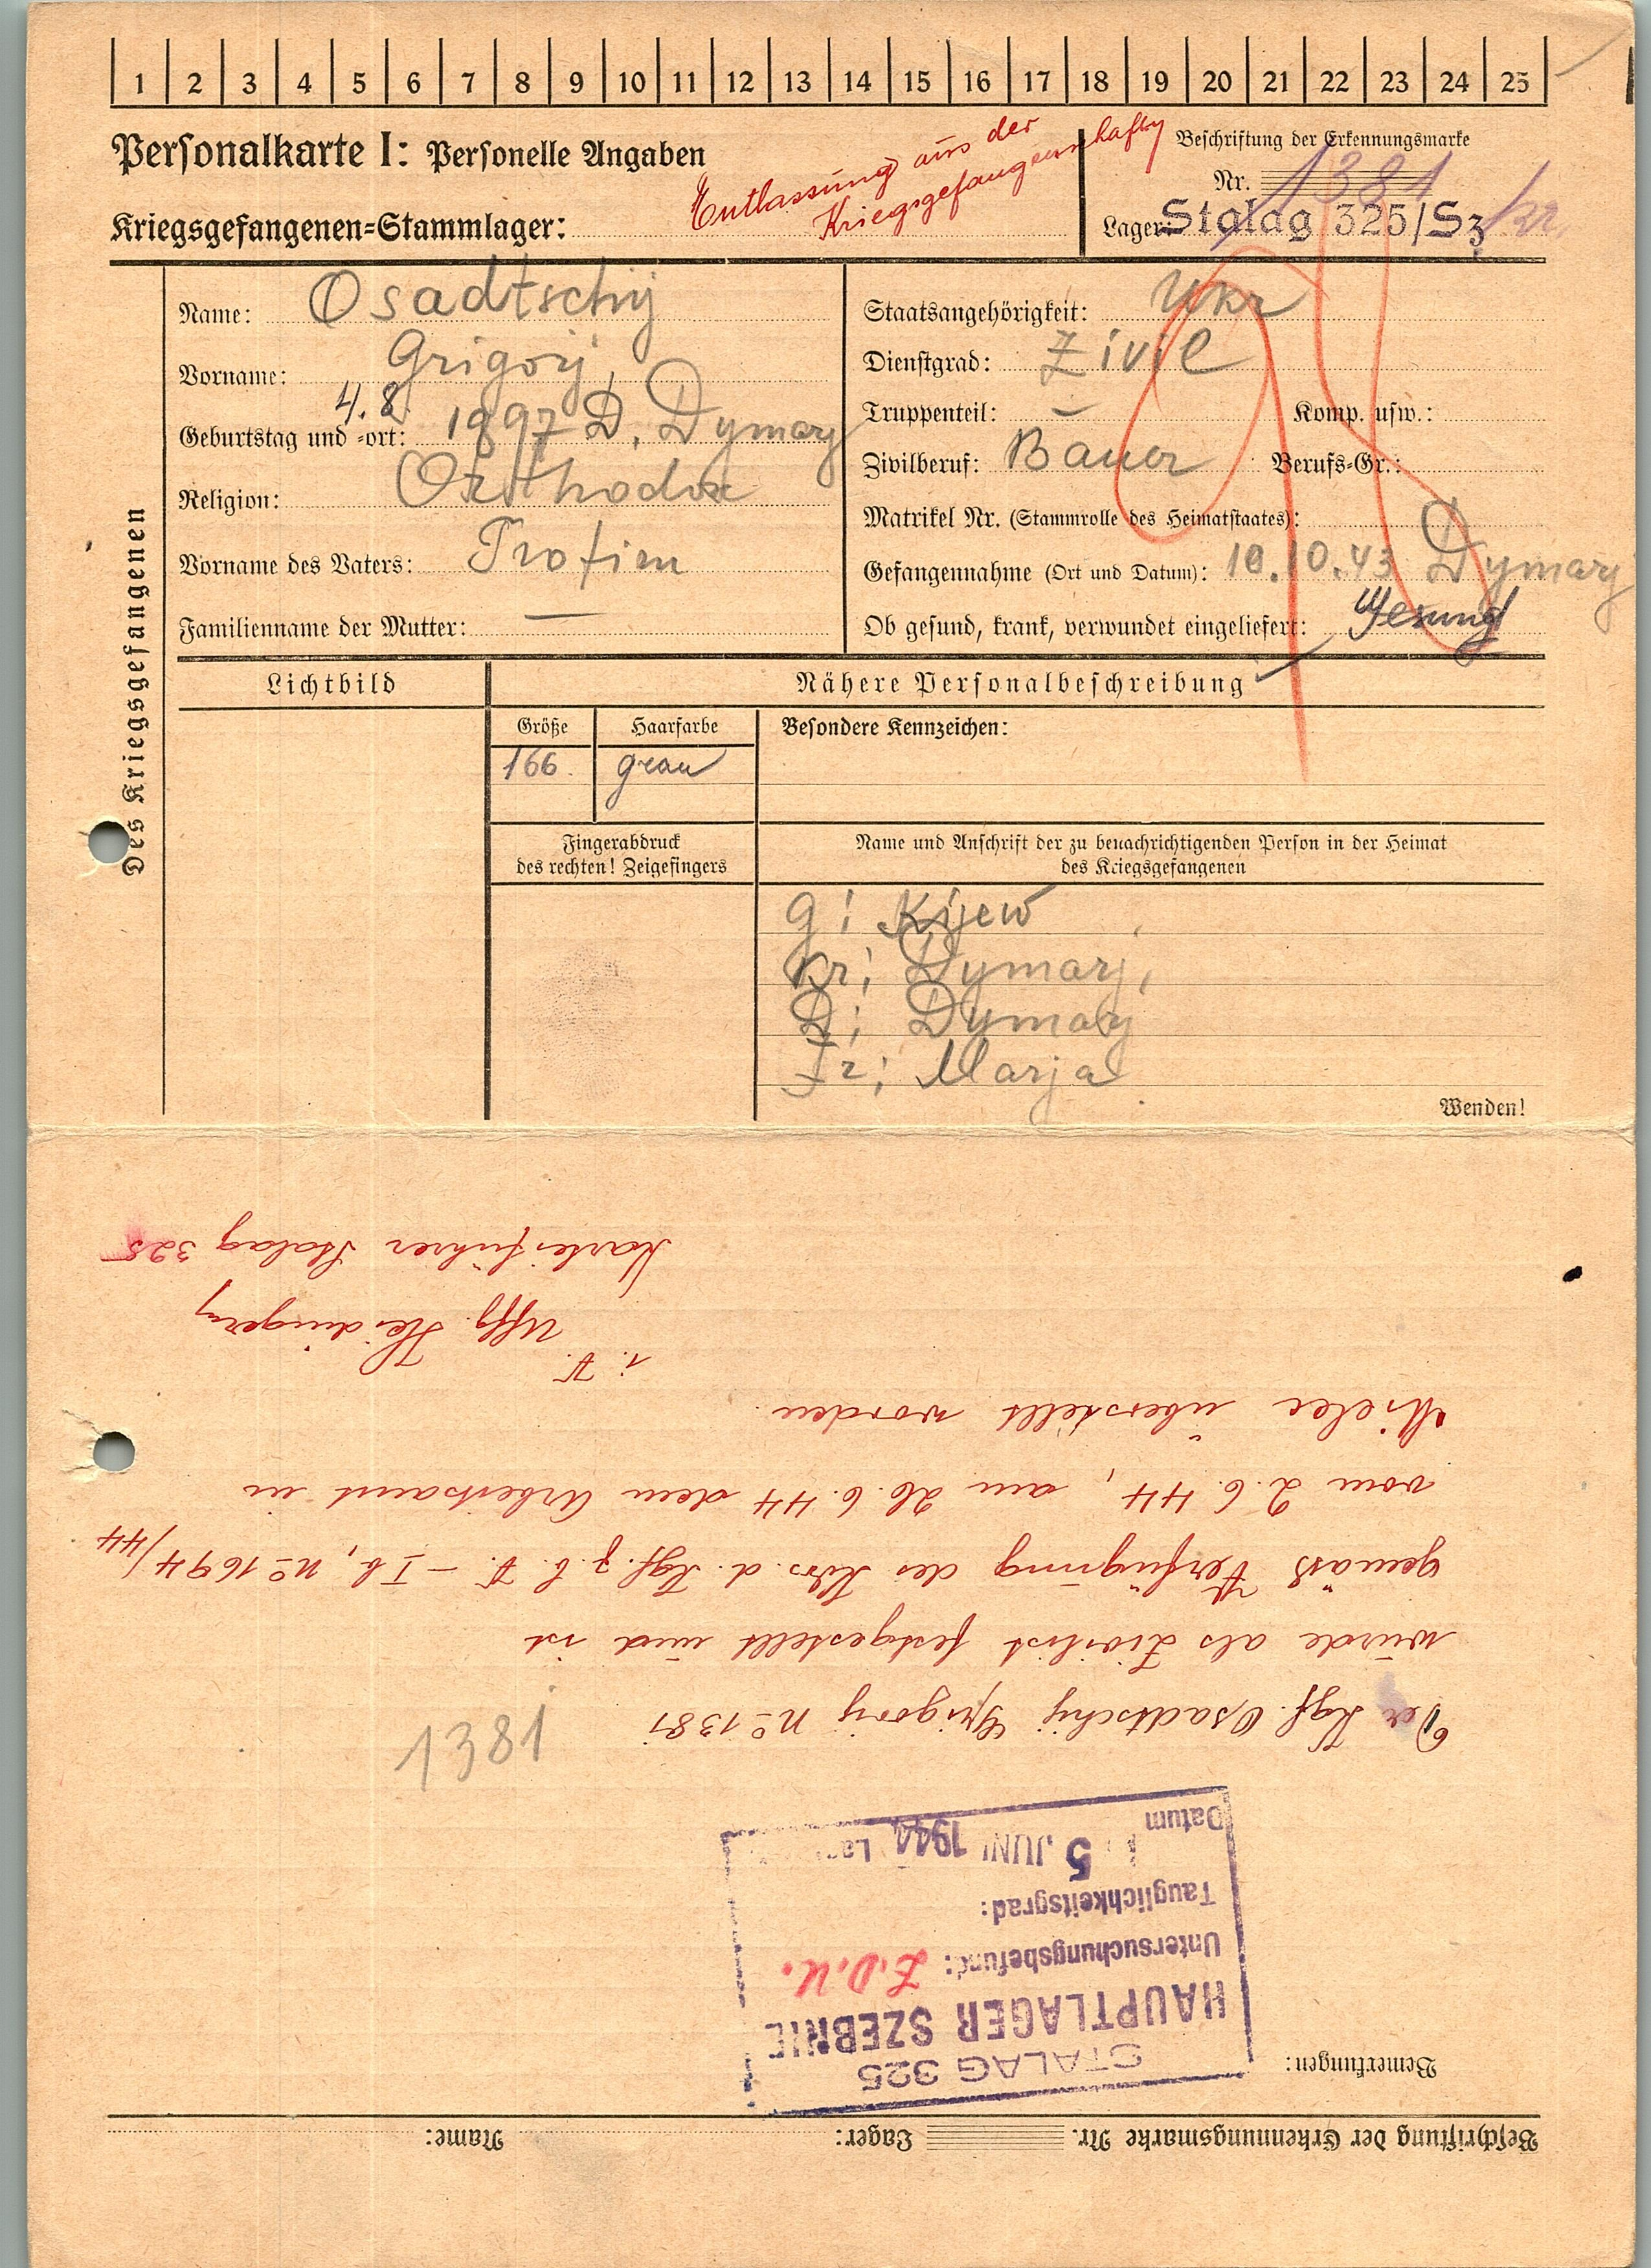 1 2 3 4 5 6 7 8 9 10 11 12 13 14 15 16 17 18 19 20 21 22 23 24 25
Personalkarte I: Personelle Angaben
Kriegsgefangenen-Stammlager:
Entlassung aus der
Kriegsgefangenschaft
Beschriftung der Erkennungsmarke
Nr. 1381
Lager: Stalag 325/Sz
Des Kriegsgefangenen
Name: Osadtschij
Vorname: Grigorij,
4.8.
Geburtstag und -ort: 1897 D. Dymarj
Religion: Orthodox
Vorname des Vaters: Trofim
Familienname der Mutter: —
Staatsangehörigkeit: Ukr
Dienstgrad: Zivil
Truppenteil: — Komp. usw.:
Zivilberuf: Bauer Berufs-Gr.:
Matrikel Nr. (Stammrolle des Heimatstaates):
Gefangennahme (Ort und Datum): 10.10.43 Dymarj
Ob gesund, krank, verwundet eingeliefert: Gesund
Lichtbild
Nähere Personalbeschreibung
Größe
166
Haarfarbe
grau
Besondere Kennzeichen:
Fingerabdruck
des rechten! Zeigefingers
Name und Anschrift der zu benachrichtigenden Person in der Heimat
des Kriegsgefangenen
G: Kijew
Kr: Dymarj,
D: Dymarj
Fr: Marja
Wenden!
Beschriftung der Erkennungsmarke Nr. Lager: Name:
Bemerkungen:
STALAG 325
HAUPTLAGER SZEBNIE
Untersuchungsbefund: Z.D.U.
Tauglichkeitsgrad:
Datum 5. JUNI 1944
1381
Der Kgf. Osadtschij Grigorij No 1381
wurde als Zivilist festgestellt und ist
gemäß Verfügung des Kdrs. d. Kgf. z. b. V. – I b, No 1694/44
vom 2.6.44, am 26.6.44 dem Arbeitsamt in
Mielec überstellt worden.
i. V.
Uffz.
Karteiführer Stalag 325